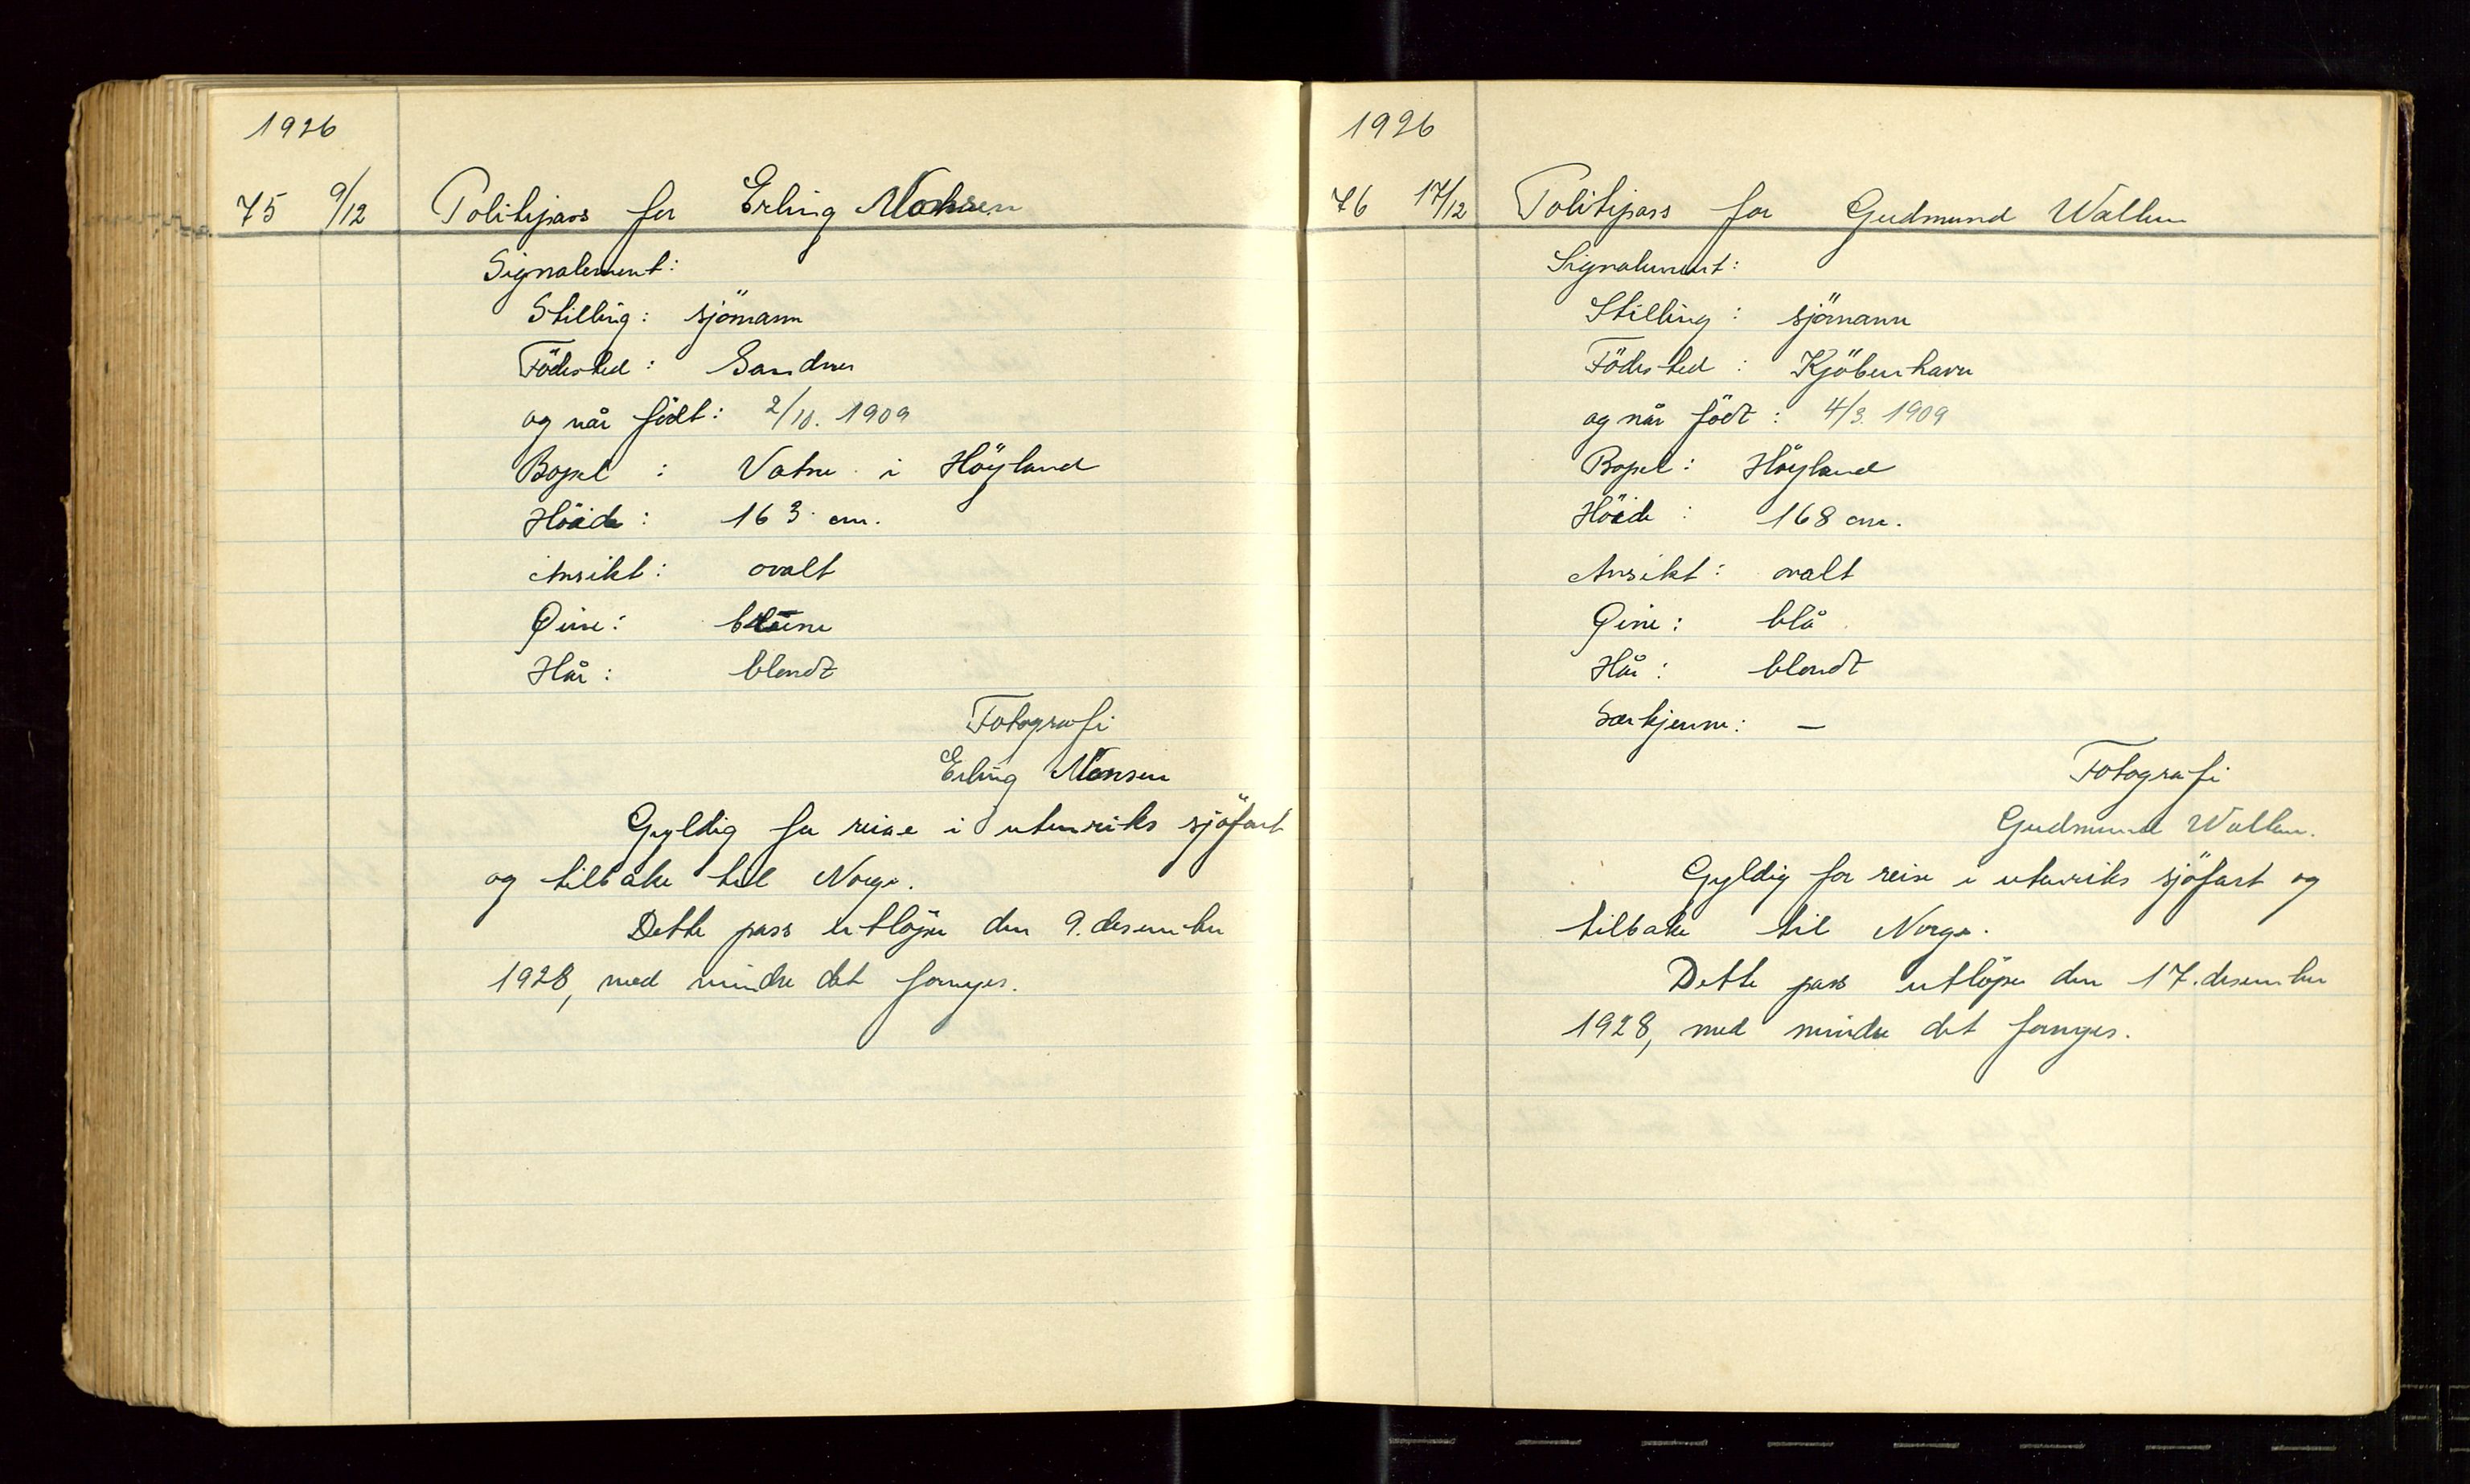 1926
75 9/12 Politipass for Erling Monsen
Signalement:
Stilling: sjömann
Födested: Sandnes
og når född: 2/10. 1909
Bopel: Vatne i Höyland
Höide: 163 cm.
Ansikt: ovalt
Øine: brune
Hår: blondt
Fotografi
Erling Monsen
Gyldig for reise i utenriks sjöfart
og tilbake til Norge.
Dette pass utlöper den 9. desember
1928, med mindre det fornyes.
1926
76 17/12 Politipass for Gudmund Wallem
Signalement:
Stilling: sjömann
Födested: Kjöbenhavn
og når född: 4/3. 1909
Bopel: Höyland
Höide: 168 cm.
Ansikt: ovalt
Øine: blå
Hår: blondt
Særkjenne: —
Fotografi
Gudmund
Gyldig for reise i utenriks sjöfart og
tilbake til Norge.
Dette pass utlöper den 17. desember
1928, med mindre det fornyes.